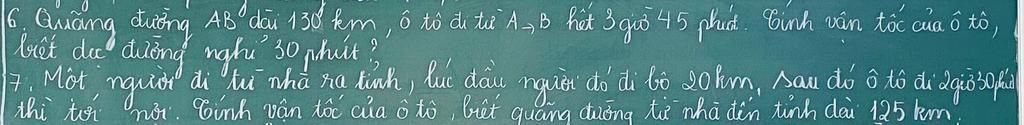 6. Quãng đường AB dài 130 km, ô tô đi từ A→B hết 3 giờ 45 phút. Tính vân tốc của ô tô,
biết dọc đường nghỉ 30 phút?
7. Một người đi từ nhà ra tỉnh, lúc đầu người đó đi bộ 20km, sau đó ô tô đi 2giờ30phút
thì tới nơi. Tính vận tốc của ô tô, biết quãng đường từ nhà đến tỉnh dài 125 km.